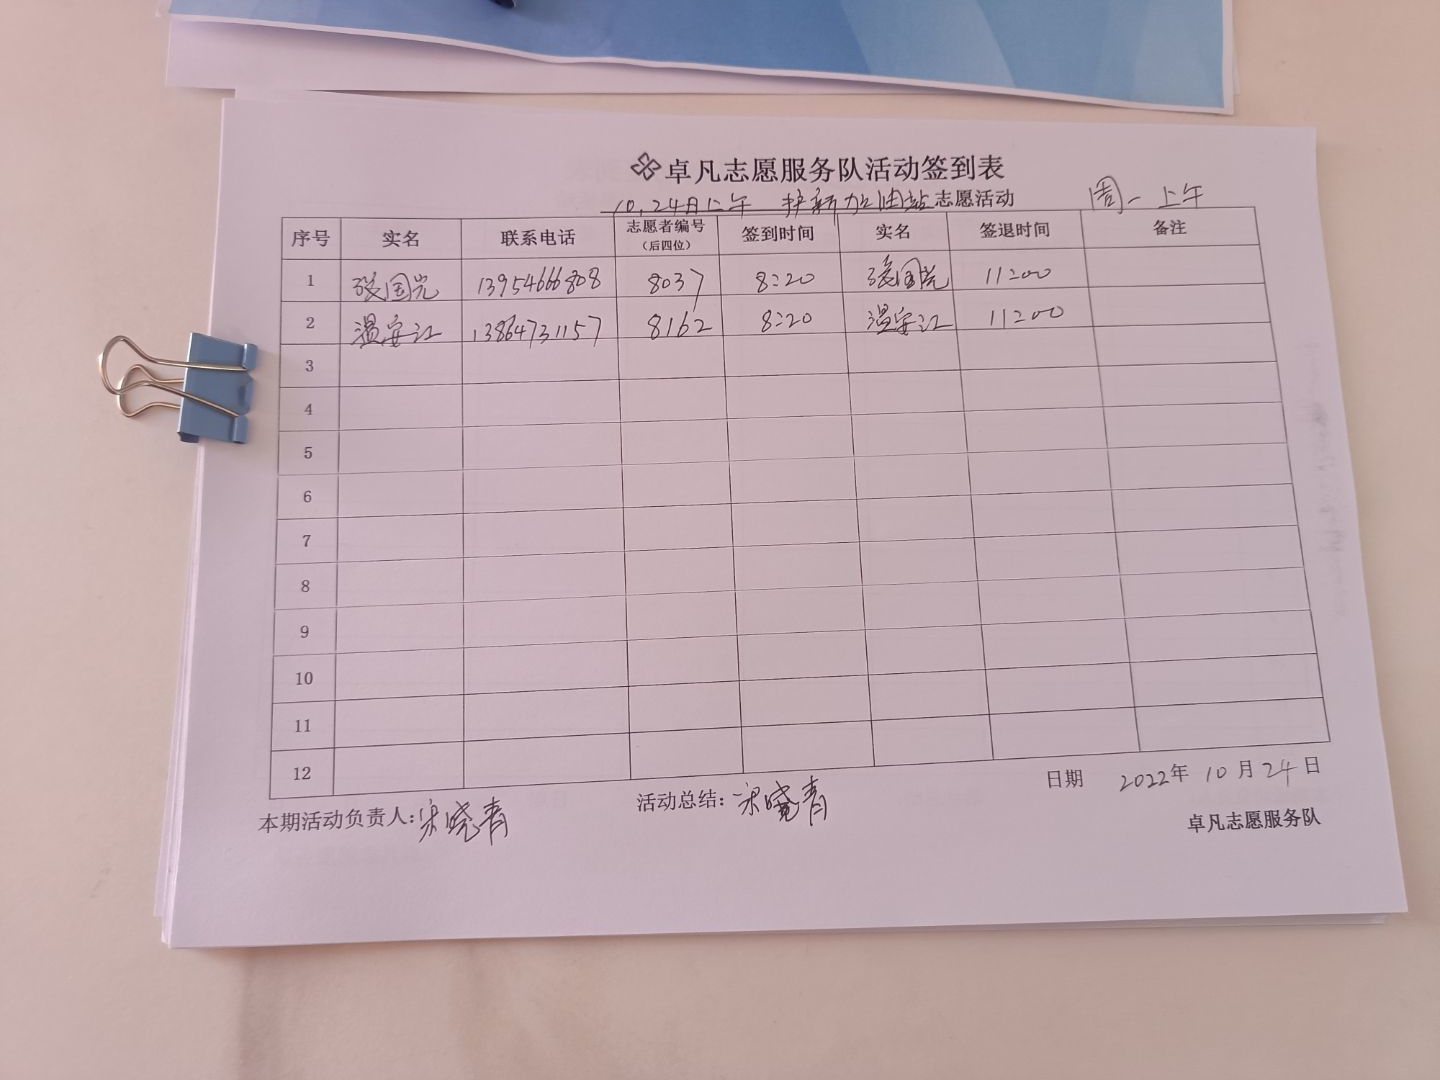 卓凡志愿服务队活动签到表
10.24日上午 护新加油站志愿活动 周一上午
序号 实名 联系电话 志愿者编号(后四位) 签到时间 实名 签退时间 备注
1 张国光 13954666808 8037 8:20 张国光 11:00
2 温安江 13864731157 8162 8:20 温安江 11:00
3
4
5
6
7
8
9
10
11
12
本期活动负责人:宋晓青 活动总结:宋晓青 日期 2022年10月24日
卓凡志愿服务队